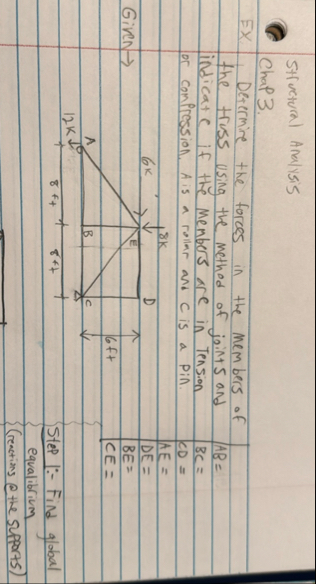 Structural Analysis
Chap 3.
EX. 1 Determine the forces in the members of
the truss using the method of joints and
indicate if the members are in Tension
or compression. A is a roller and C is a pin.
Given →
6k
8k
A
B
C
D
E
12k
8ft
8ft
6ft
AB =
BC =
CD =
AE =
DE =
BE =
CE =
Step 1:- Find global
equalibrium
(reactions @ the supports)